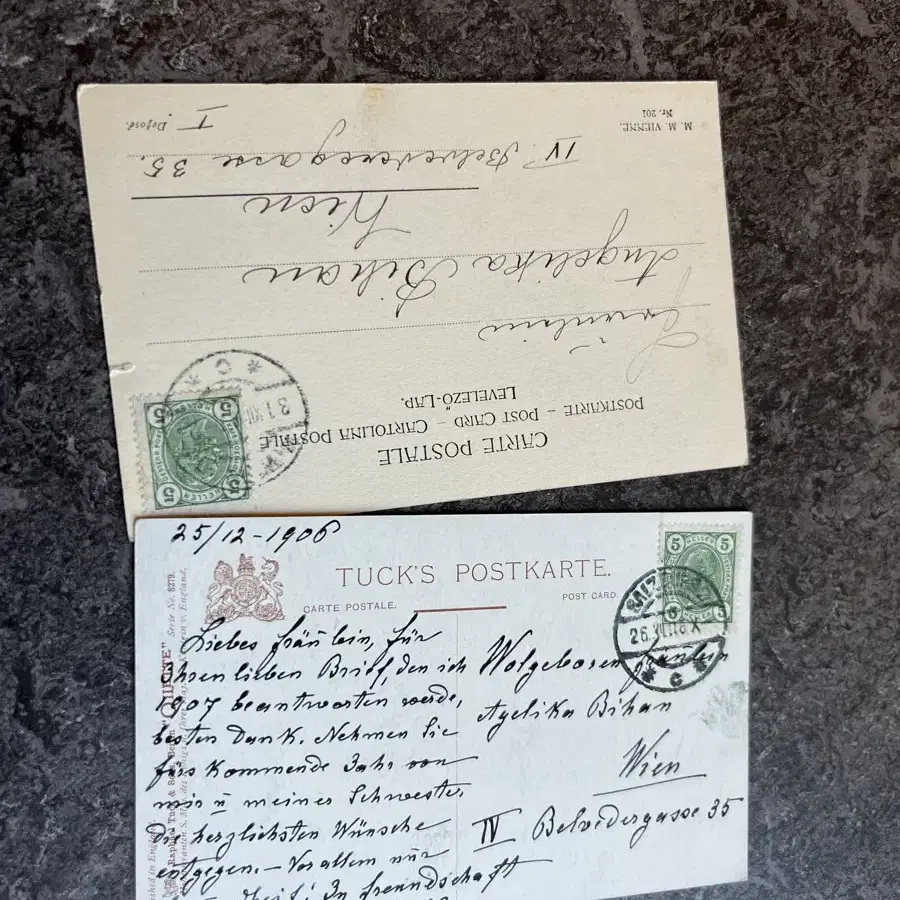 M. M. VIENNE.
Nr. 201
Deposé.
I
IV. Belvederegasse 35.
Wien
Angelika Bihan
Fräulein
CARTE POSTALE
POSTKARTE – POST CARD – CARTOLINA POSTALE
LEVELEZŐ-LAP.
31 XII
C
5 5
HELLER
5 5
25/12-1906
TUCK'S POSTKARTE.
CARTE POSTALE.
POST CARD.
5 HELLER 5
26.XII.
C
Serie No. 8279.
"OILETTE"
Raphael Tuck & Söhne, Berlin
Liebes Fräulein, für
Ihren lieben Brief, den ich
1907 beantworten werde,
besten Dank. Nehmen Sie
fürs kommende Jahr von
mir u meiner Schwester
die herzlichsten Wünsche
entgegen. – Vor allem nur
Heil! In freundschaft
Wolgeboren Fräulein
Agelika Bihan
Wien
IV Belvedergasse 35